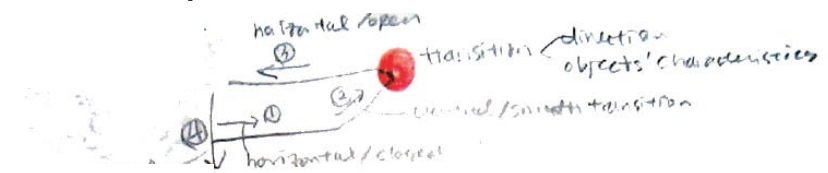 horizontal/open
③
transition
direction
objects' characteristics
②,
/smooth transition
④ ①
horizontal/closed